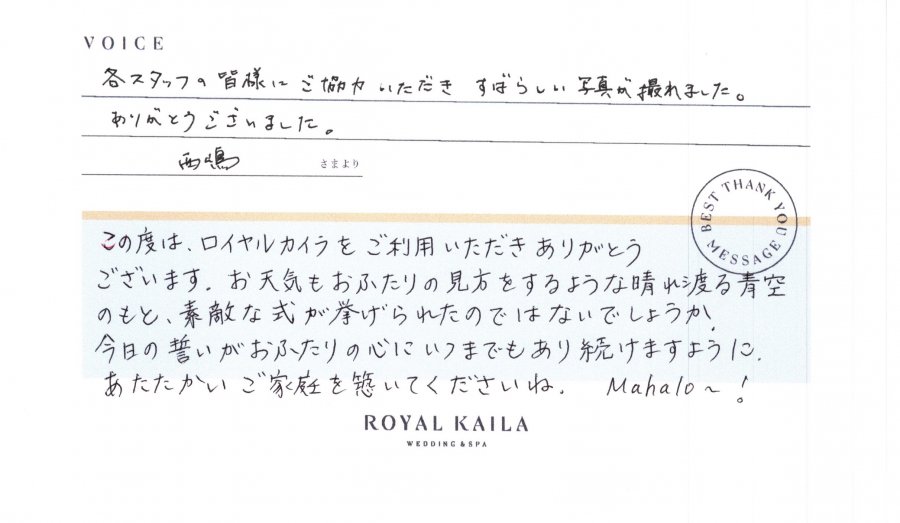 VOICE
各スタッフの皆様にご協力いただきすばらしい写真が撮れました。
ありがとうございました。
西嶋 さまより
BEST THANK YOU MESSAGE
この度は、ロイヤルカイラをご利用いただきありがとう
ございます. お天気もおふたりの見方をするような晴れ渡る青空
のもと、素敵な式が挙げられたのではないでしょうか.
今日の誓いがおふたりの心にいつまでもあり続けますように.
あたたかいご家庭を築いてくださいね. Mahalo~!
ROYAL KAILA
WEDDING & SPA